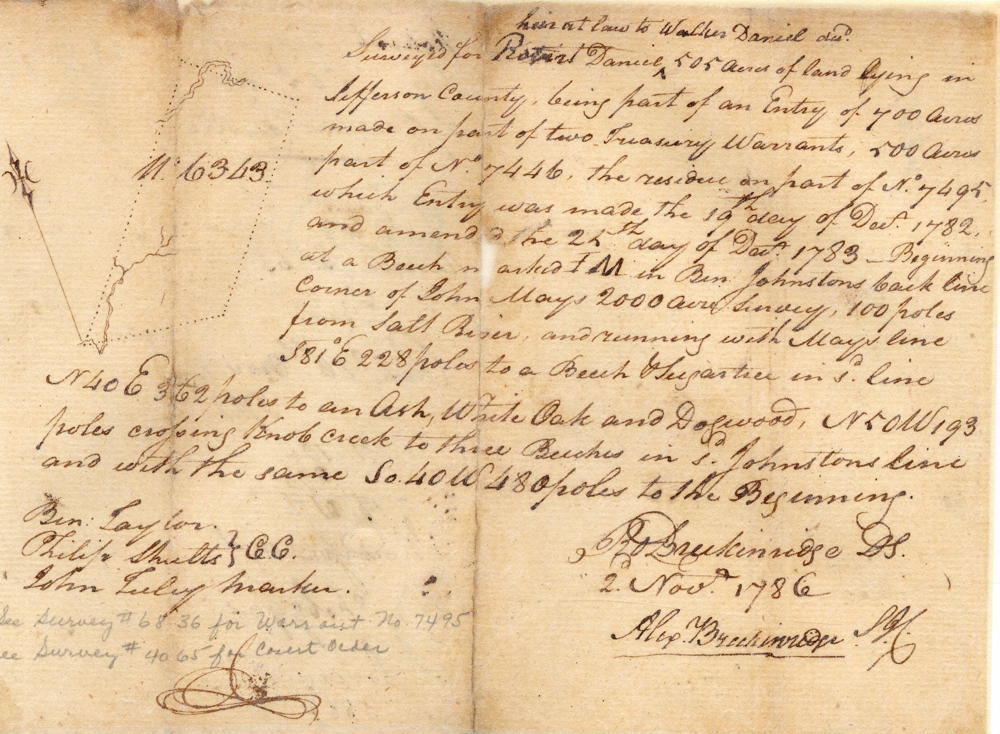 heir at law to Walker Daniel decd.
Surveyed for Robert Daniel ^ 505 Acres of land lying in
Jefferson County, being part of an Entry of 700 Acres
made on part of two Treasury Warrants, 500 Acres
part of No. 7446, the residue on part of No. 7495,
which Entry was made the 19th day of Decr. 1782,
and amended the 25th day of Decr. 1783 – Beginning
at a Beech marked I M in Ben Johnstons back line
Corner of John Mays 2000 acre Survey, 100 poles
from Salt River, and running with Mays line
S81°E 228 poles to a Beech & Sugartree in sd. line
N40E 362 poles to an Ash, White Oak and Dogwood, N50W193
poles crossing Knob creek to three Beeches in sd. Johnstons line
and with the same So. 40W 480 poles to the Beginning.
No. 6343
Ben: Taylor.
Philip Shutts } C C.
John Tuley Marker.
Ro Breckinridge DS.
2d. Novr. 1786
Alex. Breckinridge SJC
See Survey # 6836 for Warrant No. 7495
See Survey # 4065 for Court Order